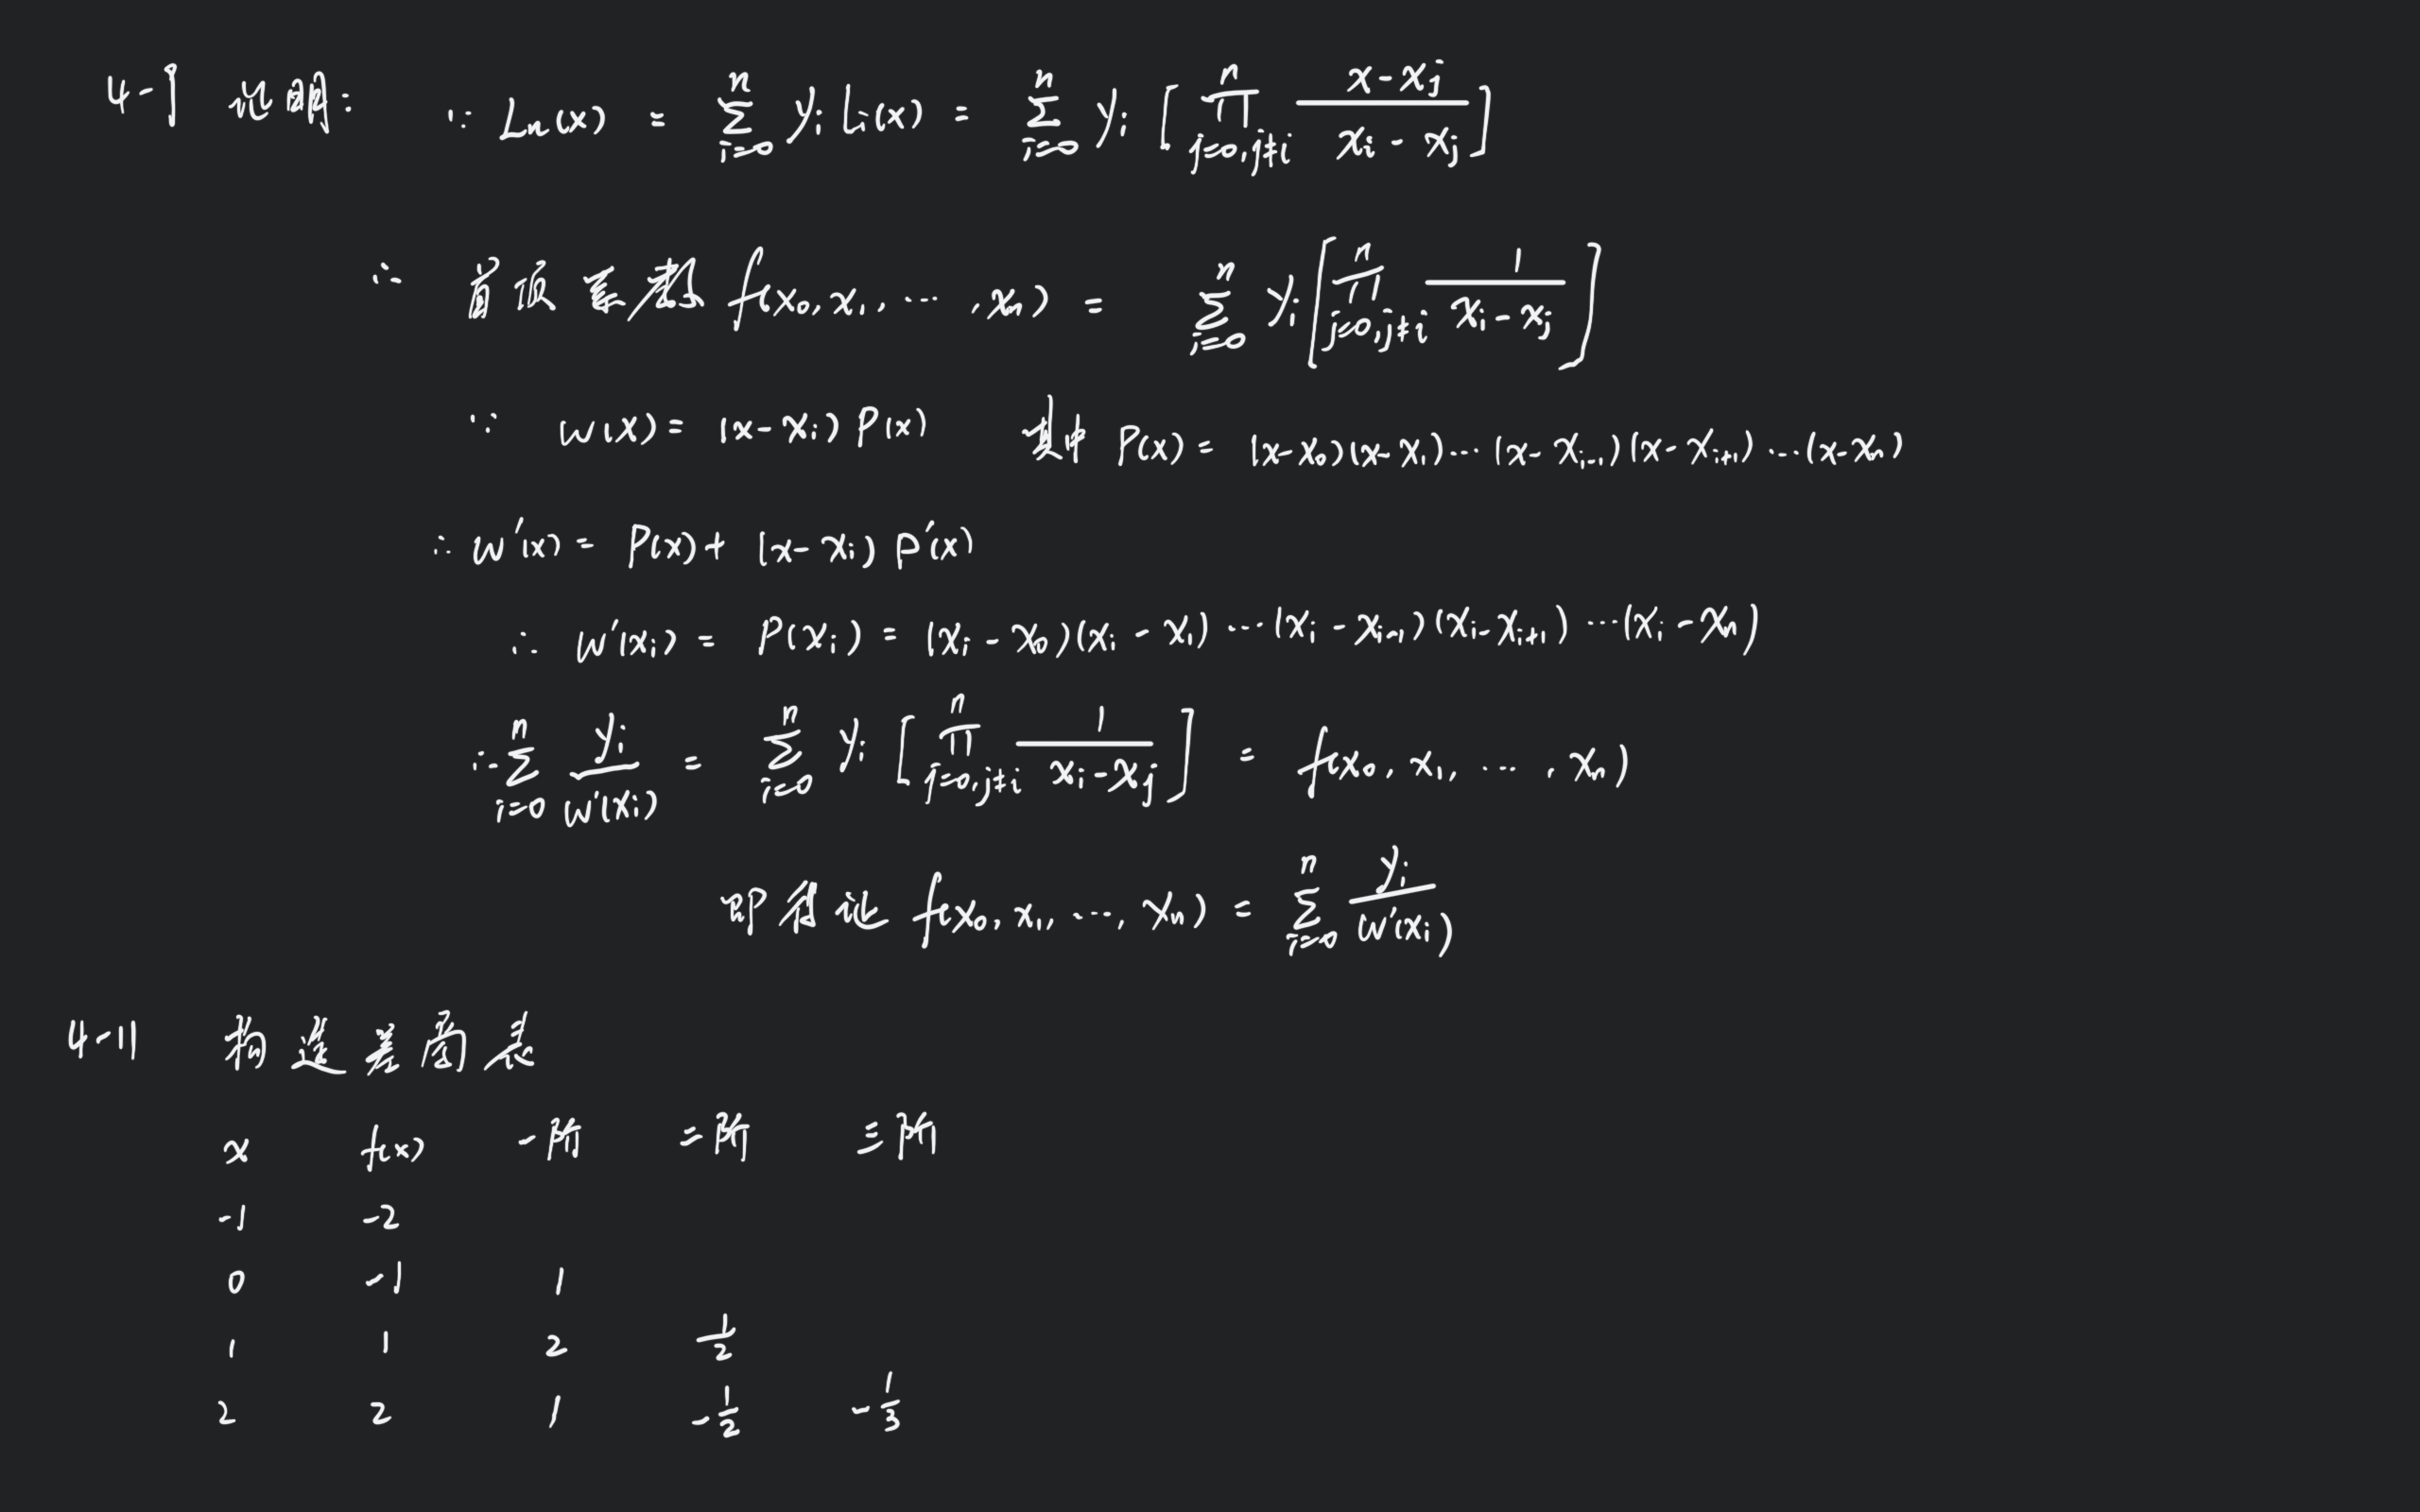 4-1 证明: ∵ Lₙ(x) = ∑_{i=0}^{n} yᵢ lᵢ(x) = ∑_{i=0}^{n} yᵢ [∏_{j=0,j≠i}^{n} (x-xⱼ)/(xᵢ-xⱼ)]
∴ 首项系数 f(x₀,x₁,…,xₙ) = ∑_{i=0}^{n} yᵢ [∏_{j=0,j≠i}^{n} 1/(xᵢ-xⱼ)]
∵ w(x) = (x-xᵢ) P(x) 其中 P(x) = (x-x₀)(x-x₁)…(x-xᵢ₋₁)(x-xᵢ₊₁)…(x-xₙ)
∴ w'(x) = P(x) + (x-xᵢ) P'(x)
∴ w'(xᵢ) = P(xᵢ) = (xᵢ-x₀)(xᵢ-x₁)…(xᵢ-xᵢ₋₁)(xᵢ-xᵢ₊₁)…(xᵢ-xₙ)
∴ ∑_{i=0}^{n} yᵢ/w'(xᵢ) = ∑_{i=0}^{n} yᵢ [∏_{j=0,j≠i}^{n} 1/(xᵢ-xⱼ)] = f(x₀,x₁,…,xₙ)
即得证 f(x₀,x₁,…,xₙ) = ∑_{i=0}^{n} yᵢ/w'(xᵢ)
4-11 构造差商表
x f(x) 一阶 二阶 三阶
-1 -2
0 -1 1
1 1 2 1/2
2 2 1 -1/2 -1/3